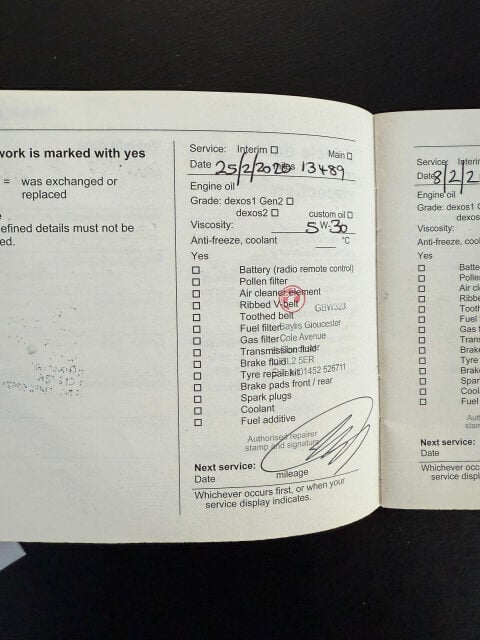 work is marked with yes
= was exchanged or
replaced
efined details must not be
ed.
Service: Interim ☐ Main ☐
Date 25/2/2020 miles 13489
Engine oil
Grade: dexos1 Gen2 ☐
dexos2 ☐ custom oil ☐
Viscosity: 5W-30
Anti-freeze, coolant ___ °C
Yes
☐ Battery (radio remote control)
☐ Pollen filter
☐ Air cleaner element
☐ Ribbed V-belt
GBW323
☐ Toothed belt
☐ Fuel filter
Baylis Gloucester
☐ Gas filter
Cole Avenue
☐ Transmission fluid
☐ Brake fluid
GL2 5ER
☐ Tyre repair kit
01452 526711
☐ Brake pads front / rear
☐ Spark plugs
☐ Coolant
☐ Fuel additive
Authorised repairer
stamp and signature
Next service:
Date mileage
Whichever occurs first, or when your
service display indicates.
Service: Interi
Date 8/2/2
Engine oil
Grade: dexos1
dexos
Viscosity:
Anti-freeze, coolant
Yes
☐ Batte
☐ Pollen
☐ Air cl
☐ Ribbe
☐ Tooth
☐ Fuel
☐ Gas
☐ Trans
☐ Brake
☐ Tyre
☐ Brake
☐ Spar
☐ Cool
☐ Fuel
Au
stamp
Next service:
Date
Whichever occurs
service displ